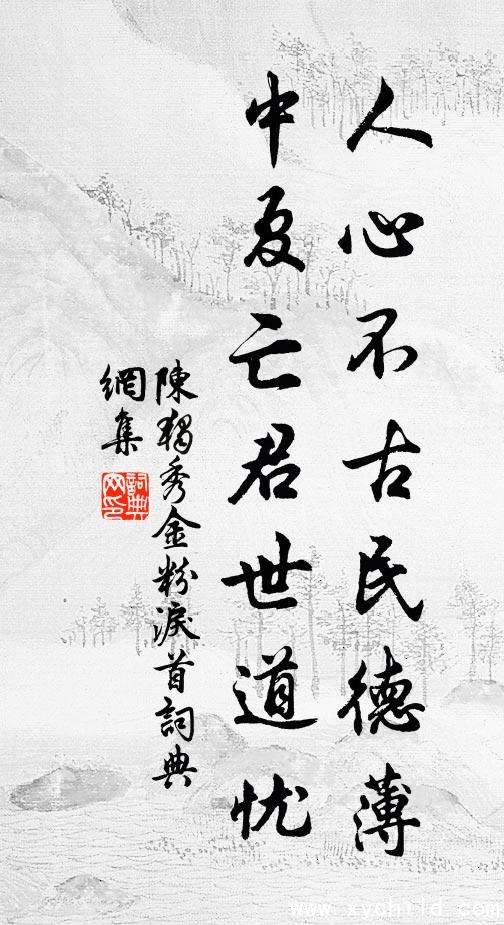 人心不古民德薄
中夏亡君世道忧
陳獨秀金粉淚首詞典
網集
詞典
网印
www.xychild.com